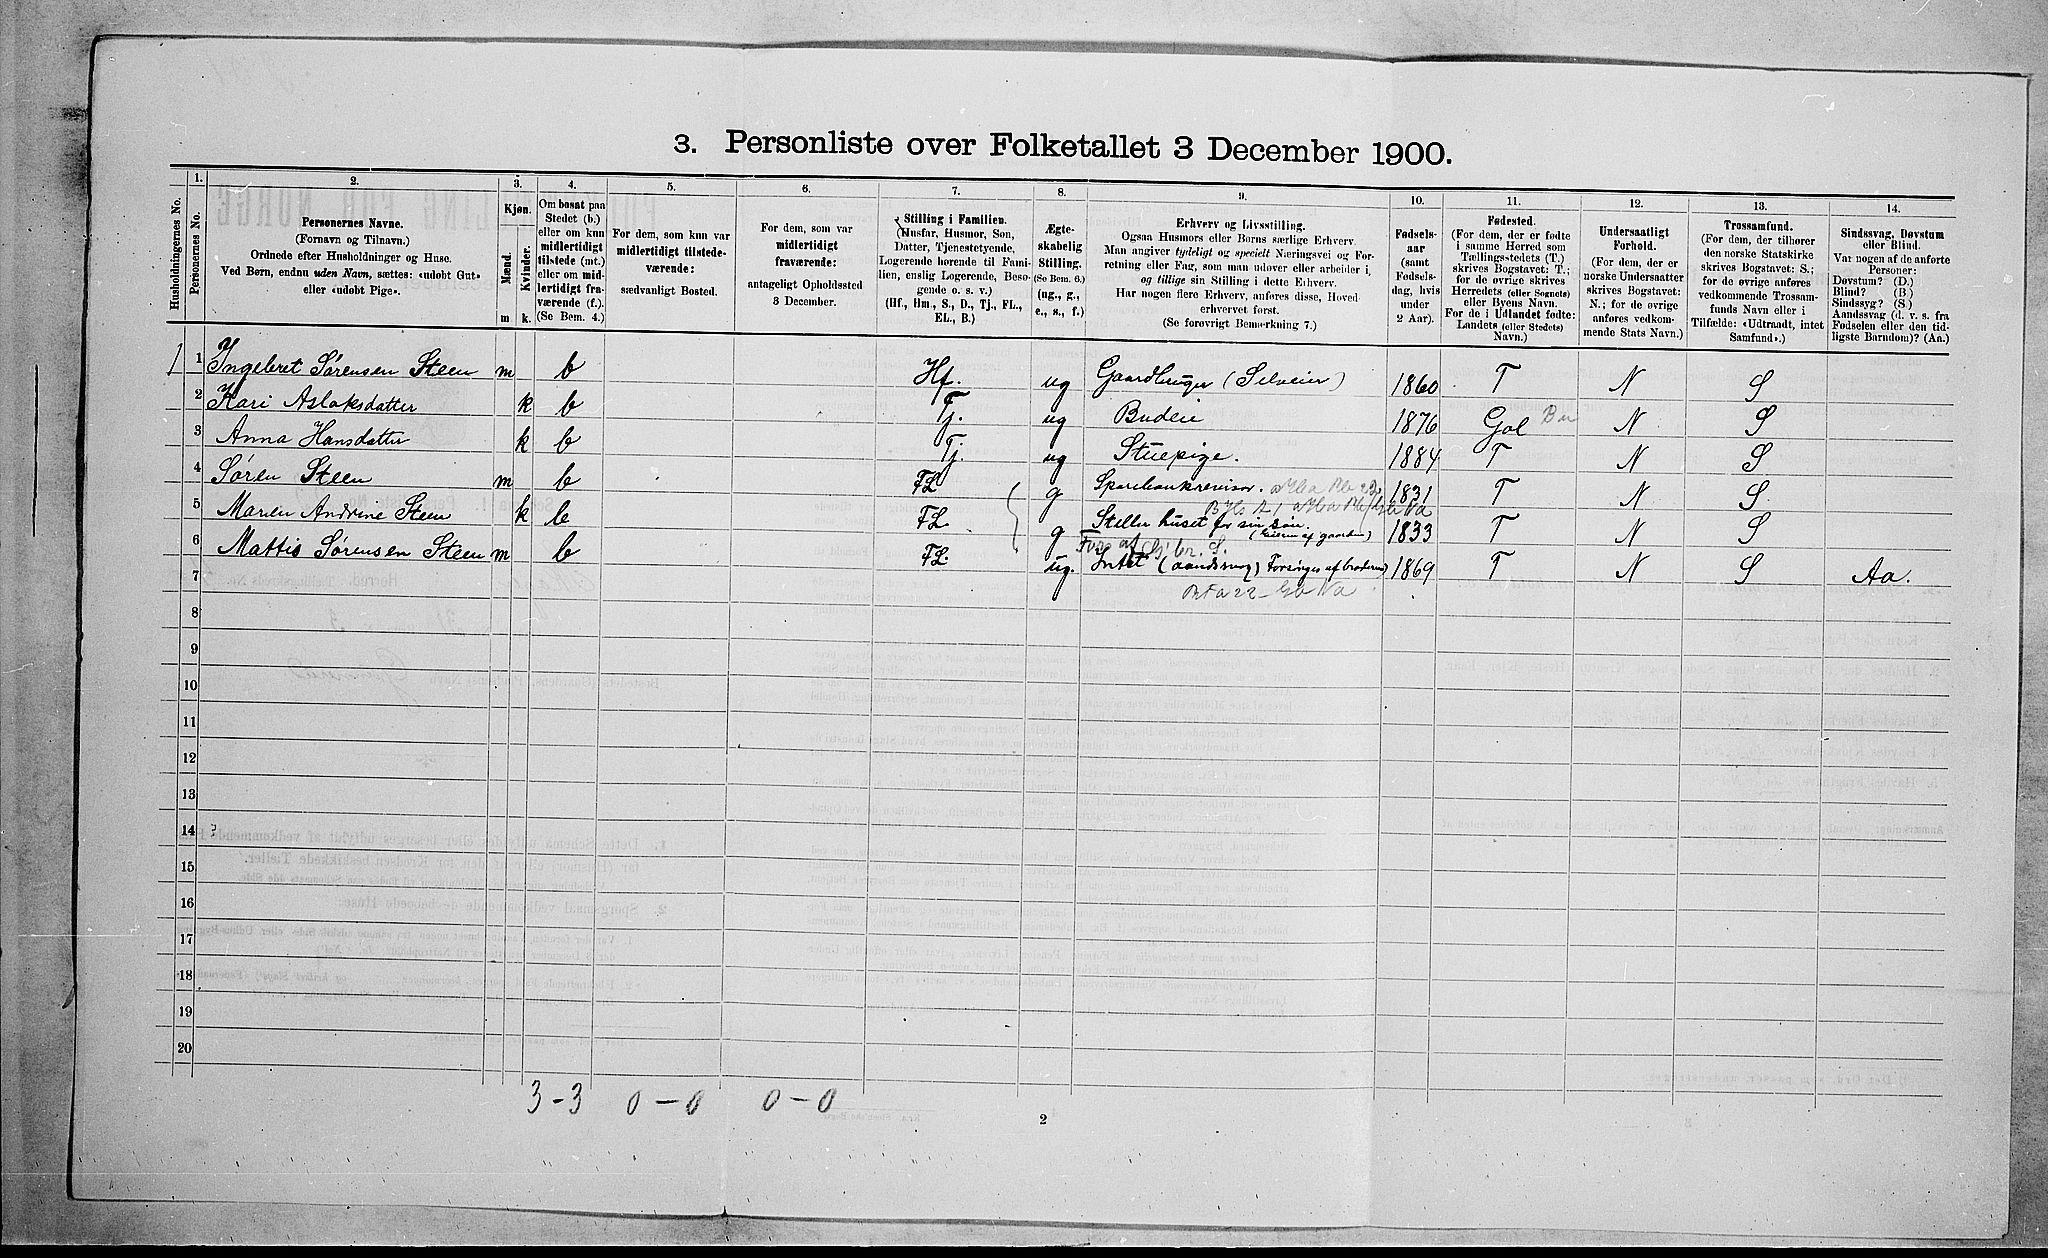 3. Personliste over Folketallet 3 December 1900.
Husholdningernes No.
1.
Personernes No.
2.
Personernes Navne.
(Fornavn og Tilnavn.)
Ordnede efter Husholdninger og Huse.
Ved Børn, endnu uden Navn, sættes: «udobt Gut»
eller «udobt Pige».
3.
Kjøn.
Mænd.
Kvinder.
m
k.
4.
Om bosat paa
Stedet (b.)
eller om kun
midlertidigt
tilstede (mt.)
eller om mid-
lertidigt fra-
værende (f.).
(Se Bem. 4.)
5.
For dem, som kun var
midlertidigt tilstede-
værende:
sædvanligt Bosted.
6.
For dem, som var
midlertidigt
fraværende:
antageligt Opholdssted
3 December.
7.
Stilling i Familien.
(Husfar, Husmor, Søn,
Datter, Tjenestetyende,
Logerende hørende til Fami-
lien, enslig Logerende, Besø-
gende o. s. v.)
(Hf., Hm., S., D., Tj., FL.,
EL., B.)
8.
Ægte-
skabelig
Stilling.
(Se Bem. 6.)
(ug., g.,
e., s., f.)
9.
Erhverv og Livsstilling.
Ogsaa Husmors eller Børns særlige Erhverv.
Man angiver tydeligt og specielt Næringsvei og For-
retning eller Fag, som man udøver eller arbeider i,
og tillige sin Stilling i dette Erhverv.
Har nogen flere Erhverv, anføres disse, Hoved-
erhvervet først.
(Se forøvrigt Bemerkning 7.)
10.
Fødsels-
aar
(samt
Fødsels-
dag, hvis
under
2 Aar).
11.
Fødested.
(For dem, der er fødte
i samme Herred som
Tællingsstedets (T.)
skrives Bogstavet: T.;
for de øvrige skrives
Herredets (eller Sognets)
eller Byens Navn.
For de i Udlandet fødte:
Landets (eller Stedets)
Navn.)
12.
Undersaatligt
Forhold.
(For dem, der er
norske Undersaatter
skrives Bogstavet:
N.; for de øvrige
anføres vedkom-
mende Stats Navn.)
13.
Trossamfund.
(For dem, der tilhører
den norske Statskirke
skrives Bogstavet: S.;
for de øvrige anføres
vedkommende Trossam-
funds Navn eller i
Tilfælde: «Udtraadt, intet
Samfund».)
14.
Sindssvag, Døvstum
eller Blind.
Var nogen af de anførte
Personer:
Døvstum? (D.)
Blind? (B.)
Sindssyg? (S.)
Aandssvag (d. v. s. fra
Fødselen eller den tid-
ligste Barndom)? (Aa.)
1 1 Ingebret Sørensen Steen m b Hf. ug Gaardbruger (Selveier) 1860 T N S
2 Kari Aslaksdatter k b Tj. ug Budeie 1876 Gol Bu N S
3 Anna Hansdatter k b Tj. ug Stuepige. 1884 T N S
4 Søren Steen m b FL g Sparebankrevisor. 1831 T N S
5 Maren Andrine Steen k b FL g Steller huset for sin søn. 1833 T N S
6 Mattis Sørensen Steen m b FL. ug. Intet (aandssvag) Forsørges af broderen) 1869 T N S Aa.
7
8
9
10
11
12
13
14
15
16
17
18
19
20
3 - 3 0 - 0 0 - 0
2